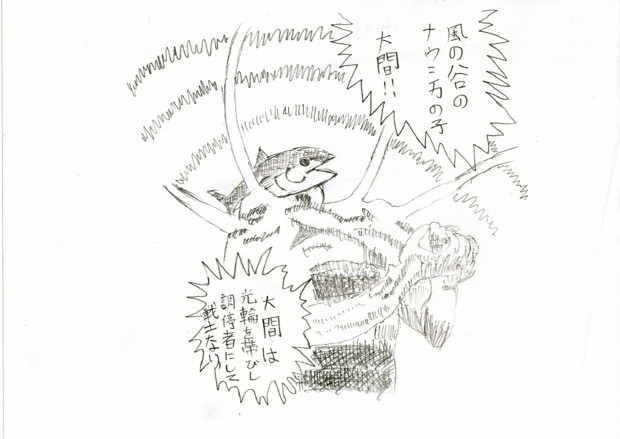 風の谷の
ナウシカの子
大間!!
大間は
光輪を帯びし
調停者にして
戦士なり!